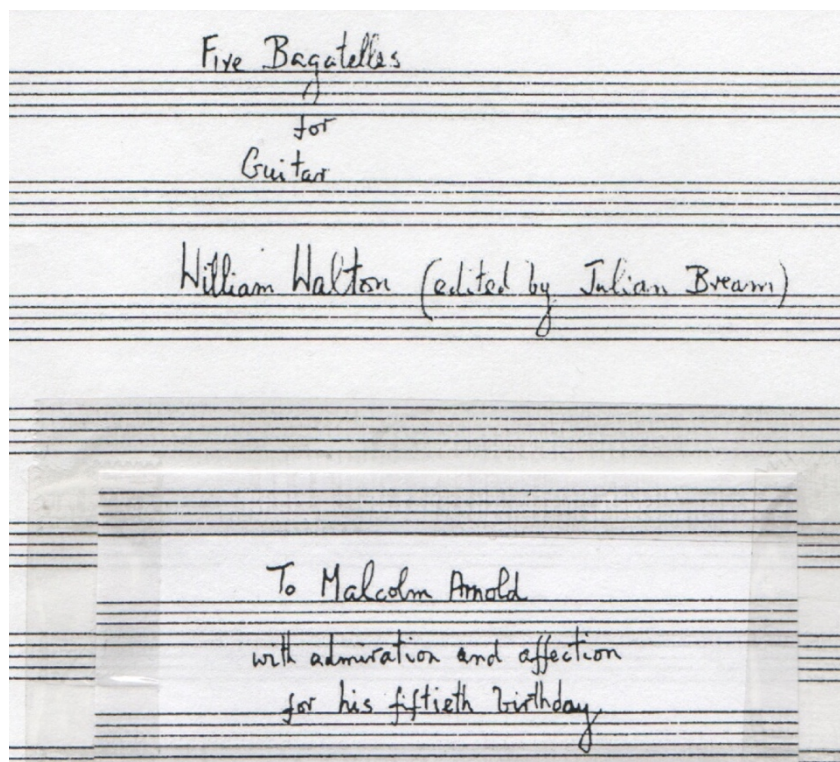 Five Bagatelles
for
Guitar
William Walton (edited by Julian Bream)
To Malcolm Arnold
with admiration and affection
for his fiftieth birthday